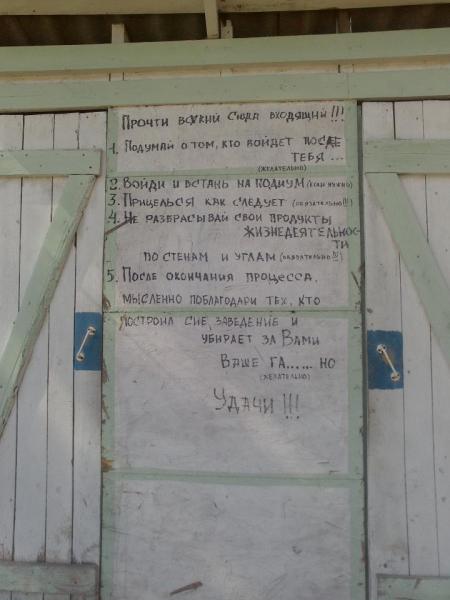 Прочти всякий сюда входящий!!!
1. Подумай о том, кто войдет после
тебя...
(желательно)
2. Войди и встань на подиум (если нужно)
3. Прицелься как следует (обязательно!!!)
4. Не разбрасывай свои продукты
жизнедеятельнос-
ти
по стенам и углам (обязательно!!!)
5. После окончания процесса,
мысленно поблагодари тех, кто
построил сие заведение и
убирает за Вами
Ваше га......но
(желательно)
Удачи!!!